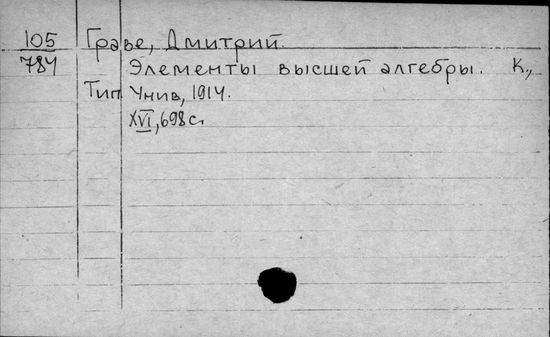 105 Граве, Дмитрий.
784 Элементы высшей алгебры. К.,
Тип. Унив., 1914.
XVI, 698 с.